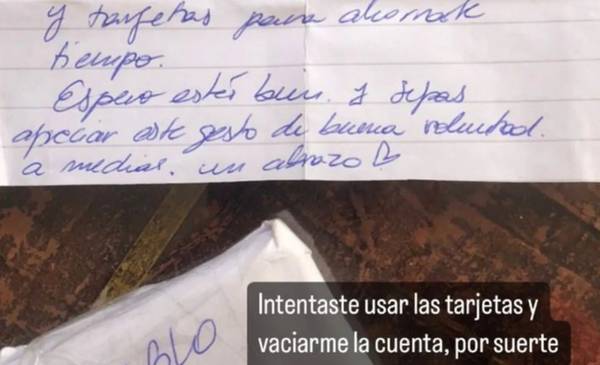 y tarjetas para ahorrarte
tiempo.
Espero estés bien. y sepas
apreciar este gesto de buena voluntad.
a medias. un abrazo
BLO
Intentaste usar las tarjetas y
vaciarme la cuenta, por suerte